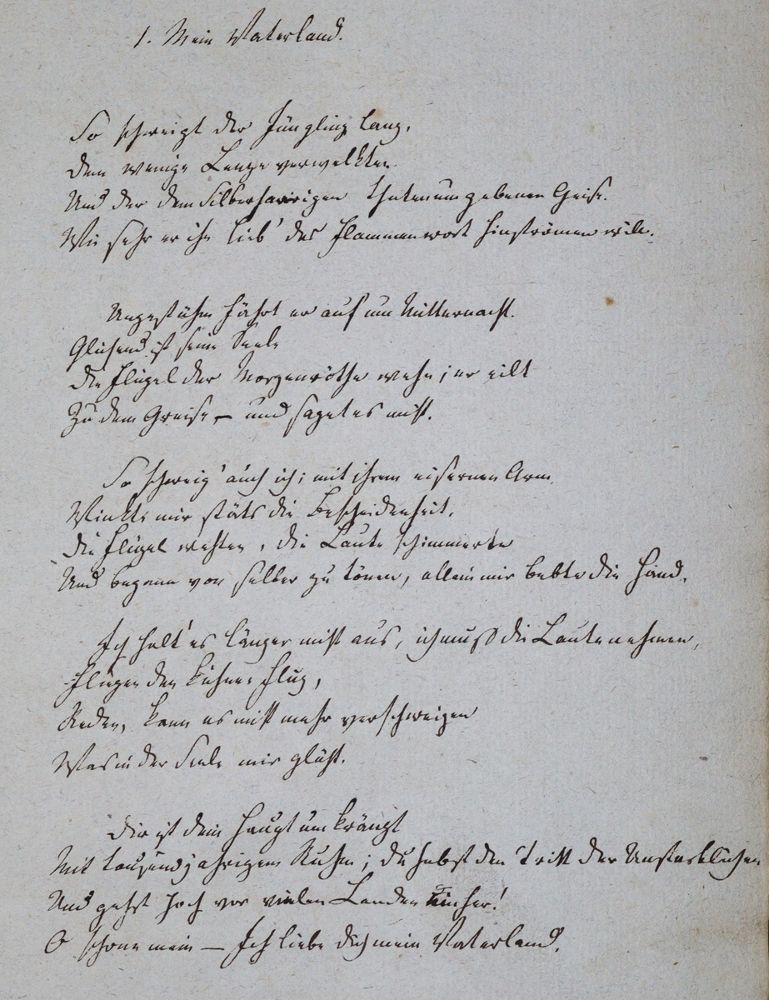 1. Mein Vaterland.
So schweigt der Jüngling lang,
Dem wenige Lenze verwelkten
Und der dem Silberhaarigen Thatenumgebenen Greise.
Wie sehr er ihn lieb' das Flammenwort hinströmen will.
Ungestühm fährt er auf um Mitternacht.
Glühend ist seine Seele
Die Flügel der Morgenröthe wehn; er eilt
Zu dem Greise, – und saget es nicht.
So schweig' auch ich; mit ihrem eisernen Arm
Winkte mir stäts die Bescheidenheit.
Die Flügel wehten, die Laute schimmerte
Und begann von selber zu tönen, allein mir bebte die Hand.
Ich halt' es länger nicht aus, ich muß die Laute nehmen,
Fliegen den kühnen Flug,
Reden, kann es nicht mehr verschweigen
Was in der Seele mir glüht.
Dir ist dein Haupt umkränzt
Mit tausendjahrigem Ruhm; du hebst den Tritt der Unsterblichen
Und gehst hoch vor vielen Landen einher!
O schone mein – Ich liebe dich mein Vaterland.